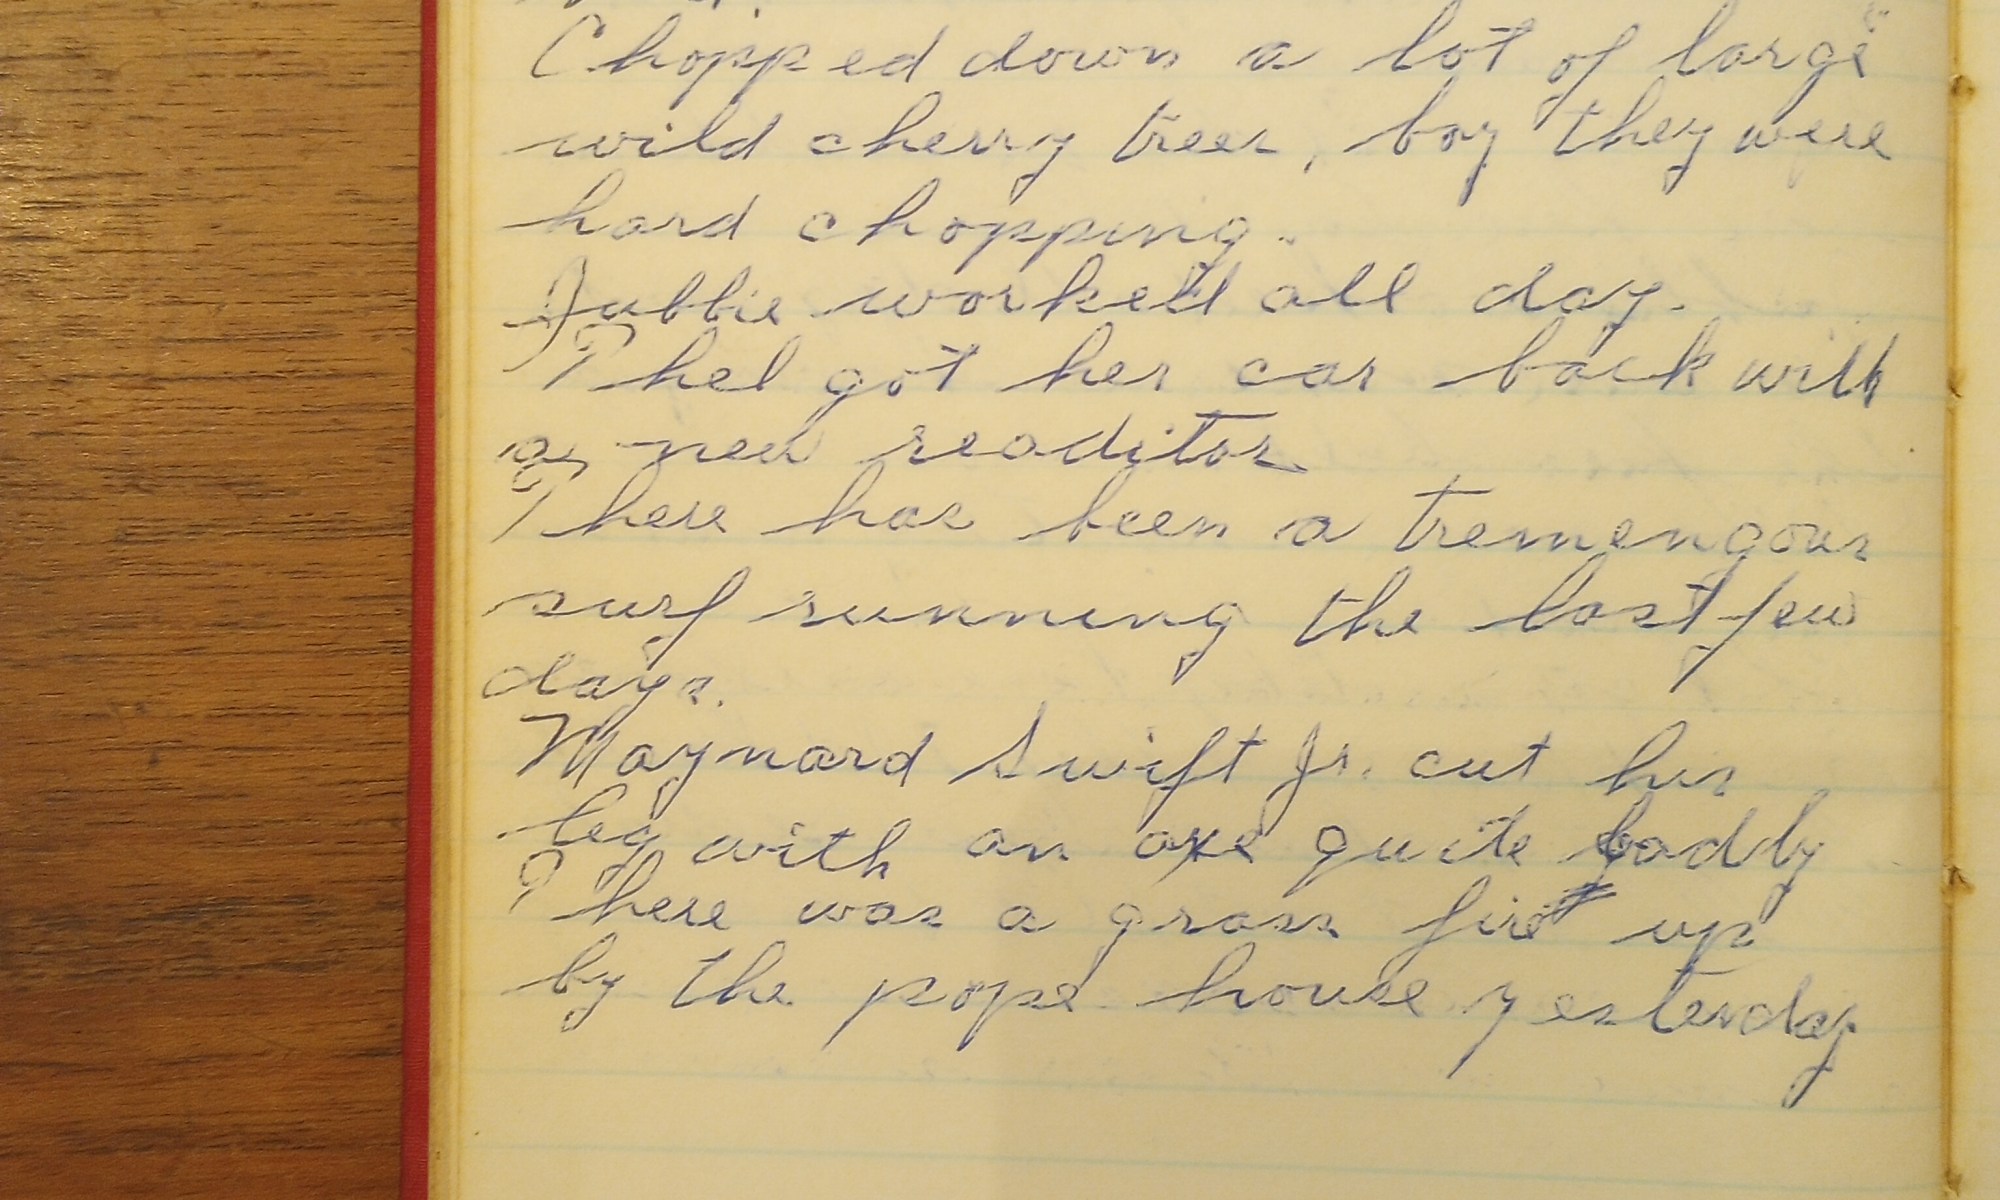 Chopped down a lot of large
wild cherry trees, boy they were
hard chopping.
Jubbie worked all day.
Thel got her car back with
a new readitor
There has been a tremengous
surf running the last few
days.
Maynard Swift Jr. cut his
leg with an axe quite badly
There was a grass fire up
by the pope house yesterday